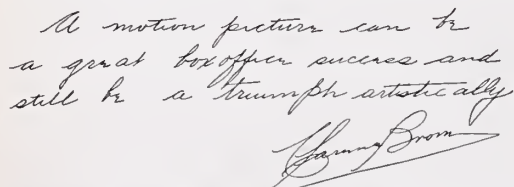 A motion picture can be
a great boxoffice success and
still be a triumph artistically
Clarence Brown